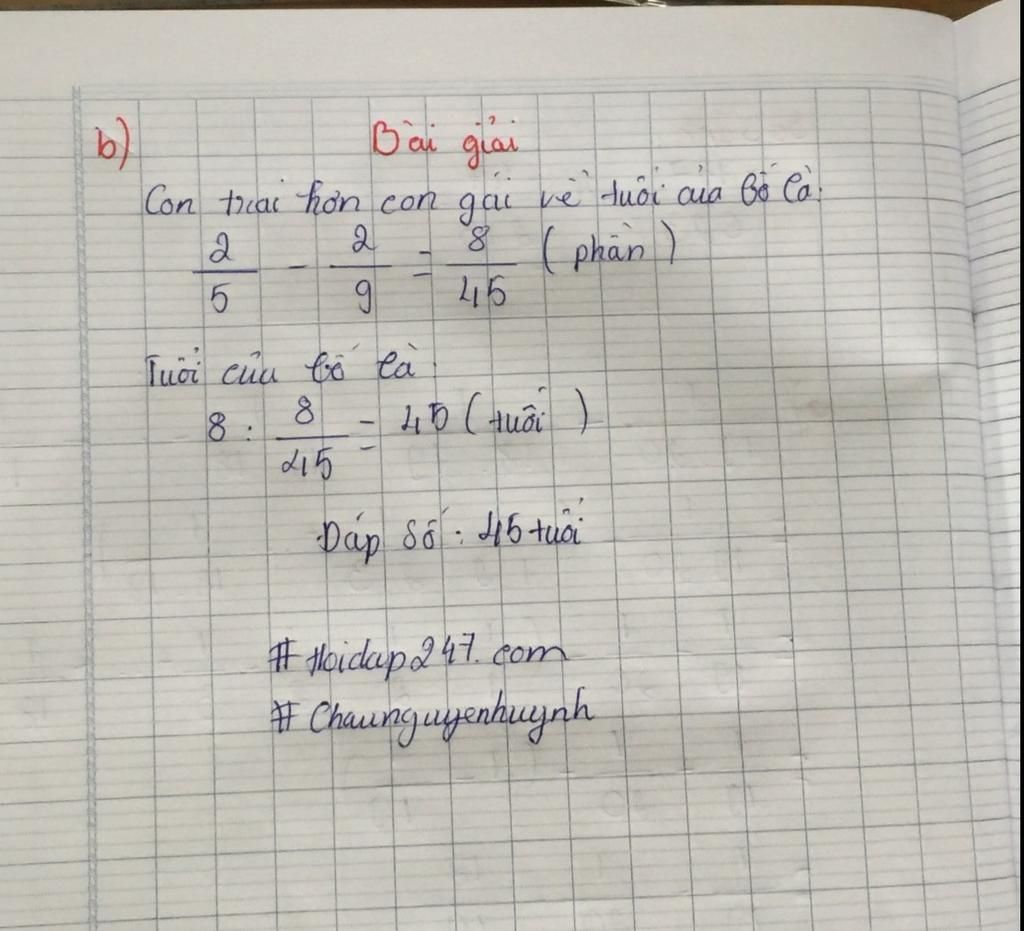 b) Bài giải
Con trai hơn con gái về tuổi của bố là:
2/5 - 2/9 = 8/45 (phần)
Tuổi của bố là:
8 : 8/45 = 45 (tuổi)
Đáp số : 45 tuổi
# Hoidap247.com
# Chaunguyenhuynh